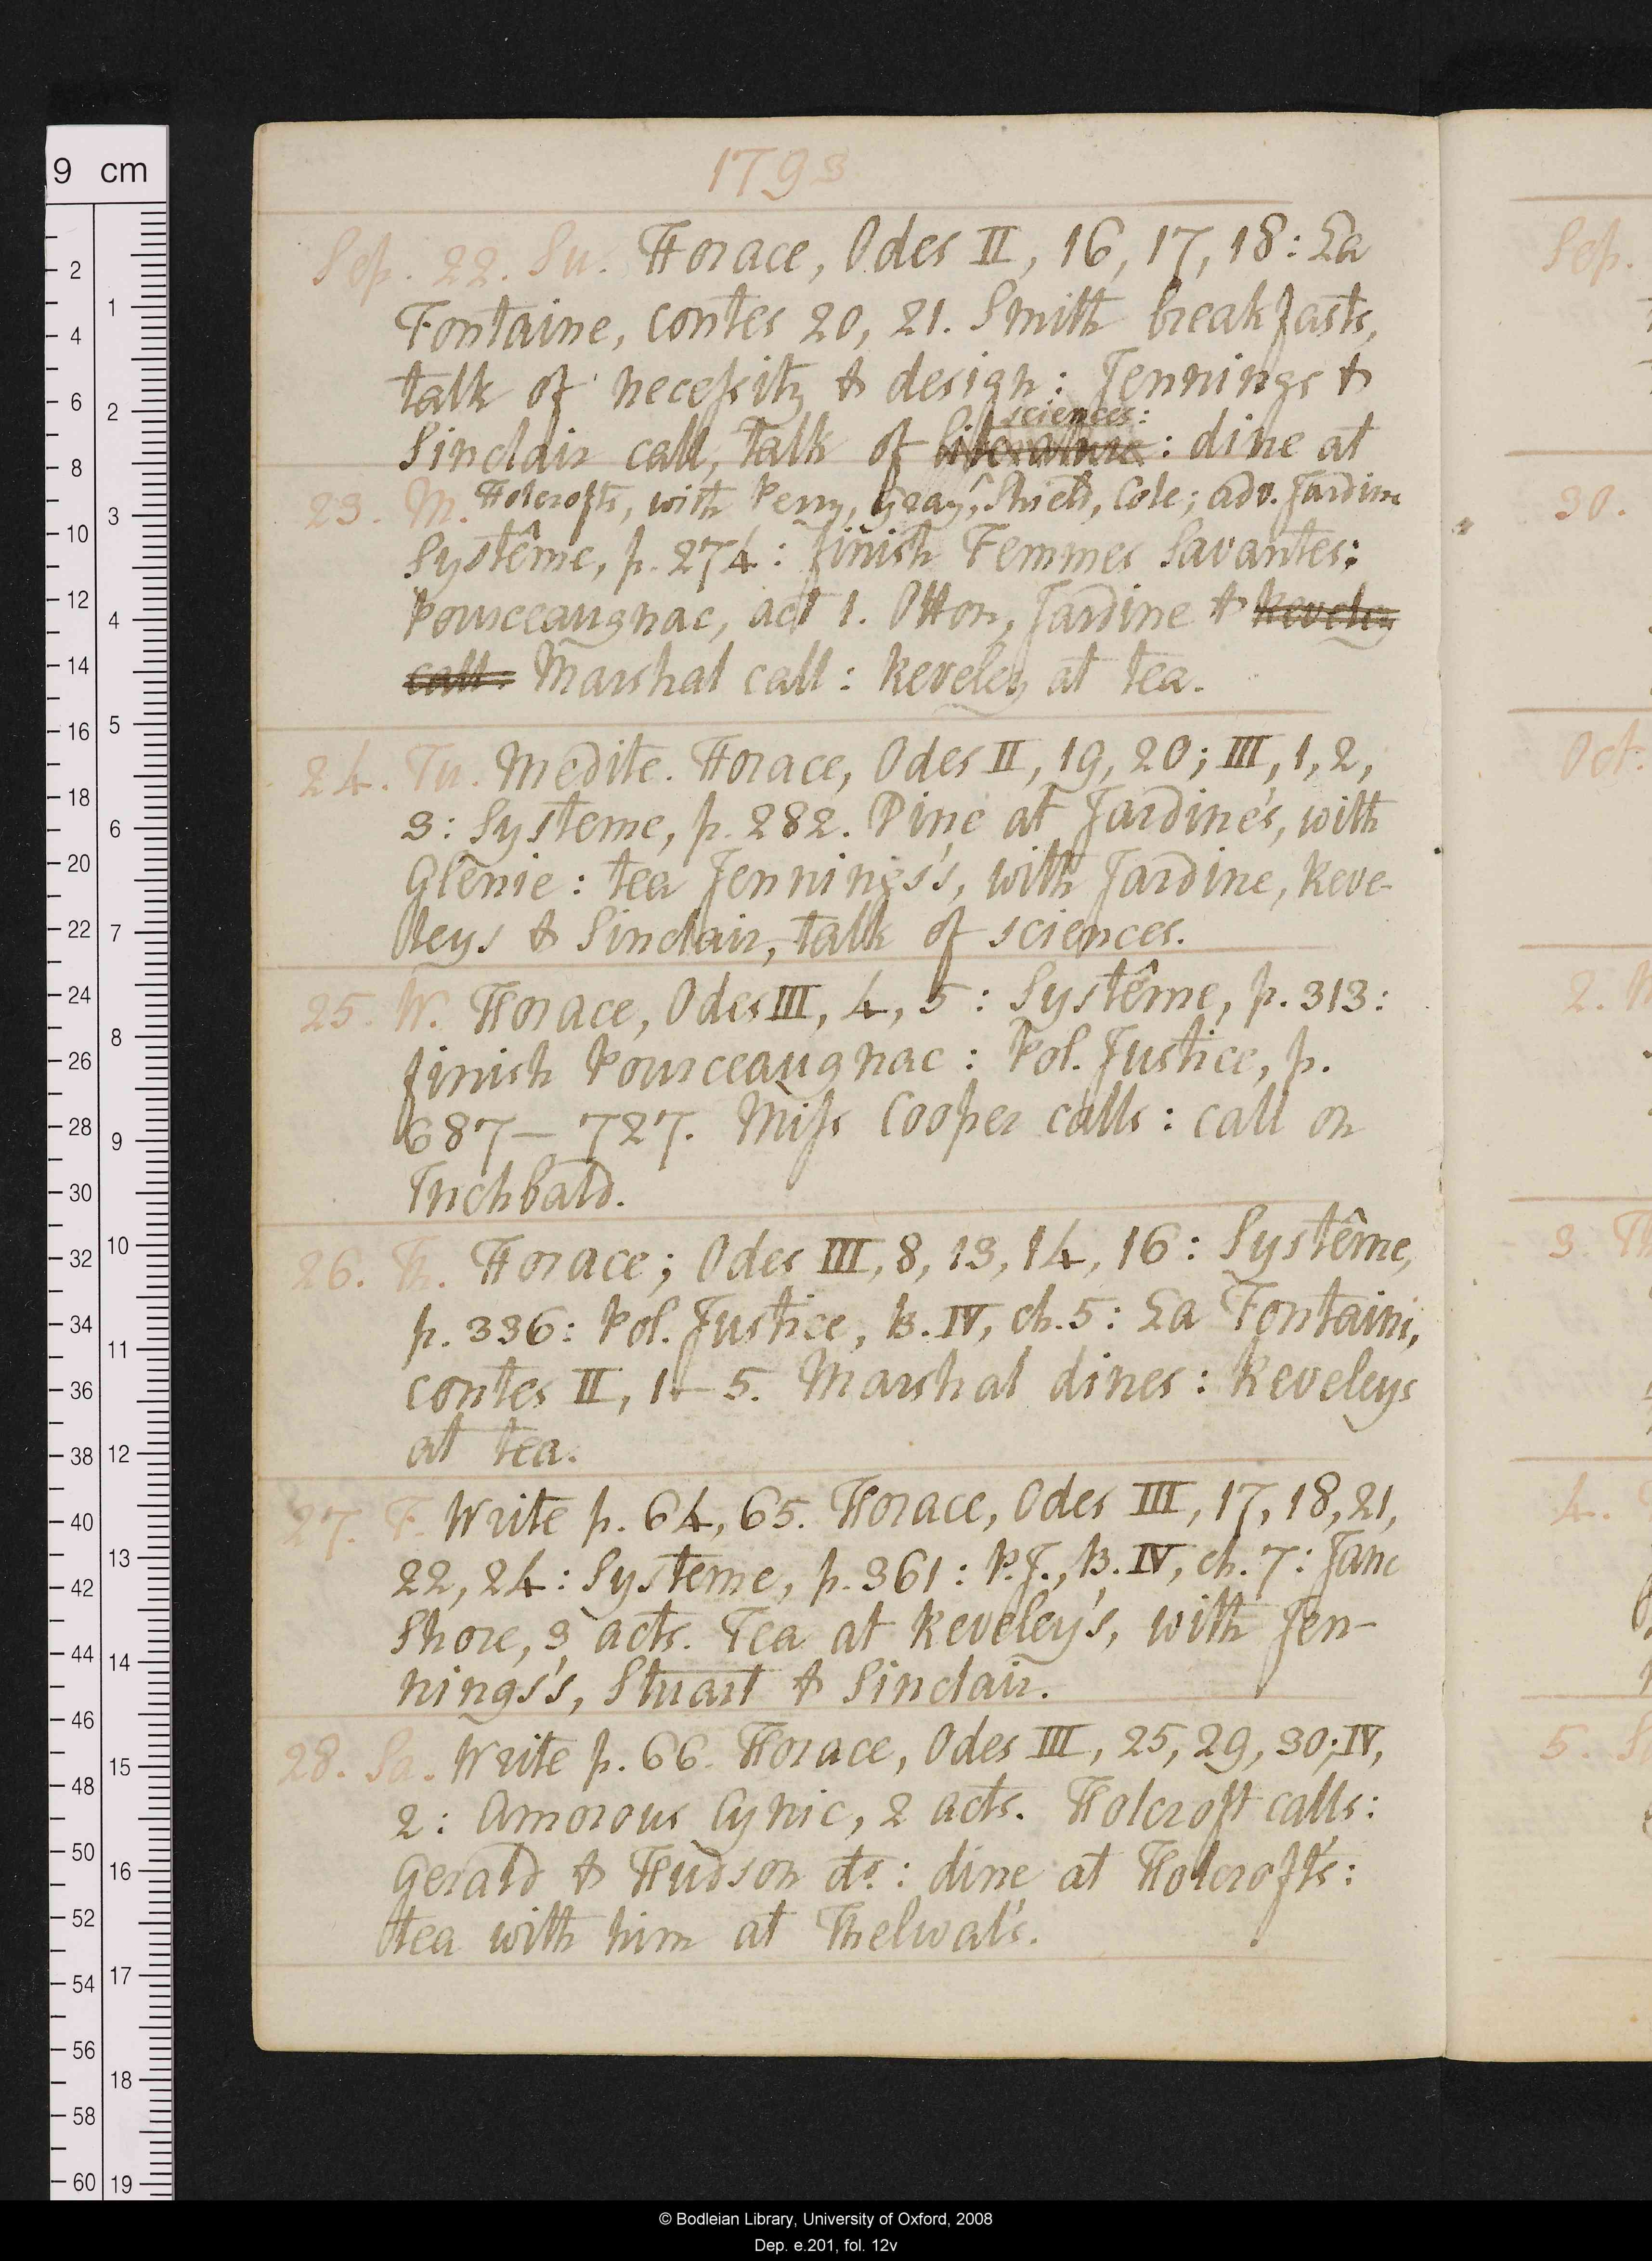 1793
Sep. 22. Su. Horace, Odes II, 16, 17, 18: La
Fontaine, contes 20, 21. Smith breakfasts,
talk of necessity & design: Jennings &
sciences:
Sinclair call, talk of literature: dine at
23. M. Holcroft's, with Perry, Gray, Shield, Cole; adv. Jardine
Systême, p. 274: finish Femmes Savantes:
Pourceaugnac, act 1. Otton, Jardine & Reveley
call: Marshal call: Reveley at tea.
24. Tu. Medite. Horace, Odes II, 19, 20; III, 1, 2,
3: Systeme, p. 282. Dine at Jardine's, with
Glenie: tea Jennings's, with Jardine, Reve-
leys & Sinclair, talk of sciences.
25. W. Horace, Odes III, 4, 5: Systême, p. 313:
finish Pourceaugnac: Pol. Justice, p.
687–727. Miss Cooper calls: call on
Inchbald.
26. Th. Horace; Odes III, 8, 13, 14, 16: Systême,
p. 336: Pol. Justice, B. IV, ch. 5: La Fontaine,
contes II, 1–5. Marshal dines: Reveleys
at tea.
27. F. Write p. 64, 65. Horace, Odes III, 17, 18, 21,
22, 24: Systeme, p. 361: P. J., B. IV, ch. 7: Jane
Shore, 3 acts. Tea at Reveley's, with Jen-
nings's, Stuart & Sinclair.
28. Sa. Write p. 66. Horace, Odes III, 25, 29, 30; IV,
2: Amorous Cynic, 2 acts. Holcroft calls:
Gerald & Hudson do: dine at Holcroft's:
tea with him at Thelwal's.
Sep.
30.
Oct.
2. W
3. Th
4.
5. S
9 cm
2 4 6 8 10 12 14 16 18 20 22 24 26 28 30 32 34 36 38 40 42 44 46 48 50 52 54 56 58 60
1 2 3 4 5 6 7 8 9 10 11 12 13 14 15 16 17 18 19
© Bodleian Library, University of Oxford, 2008
Dep. e.201, fol. 12v